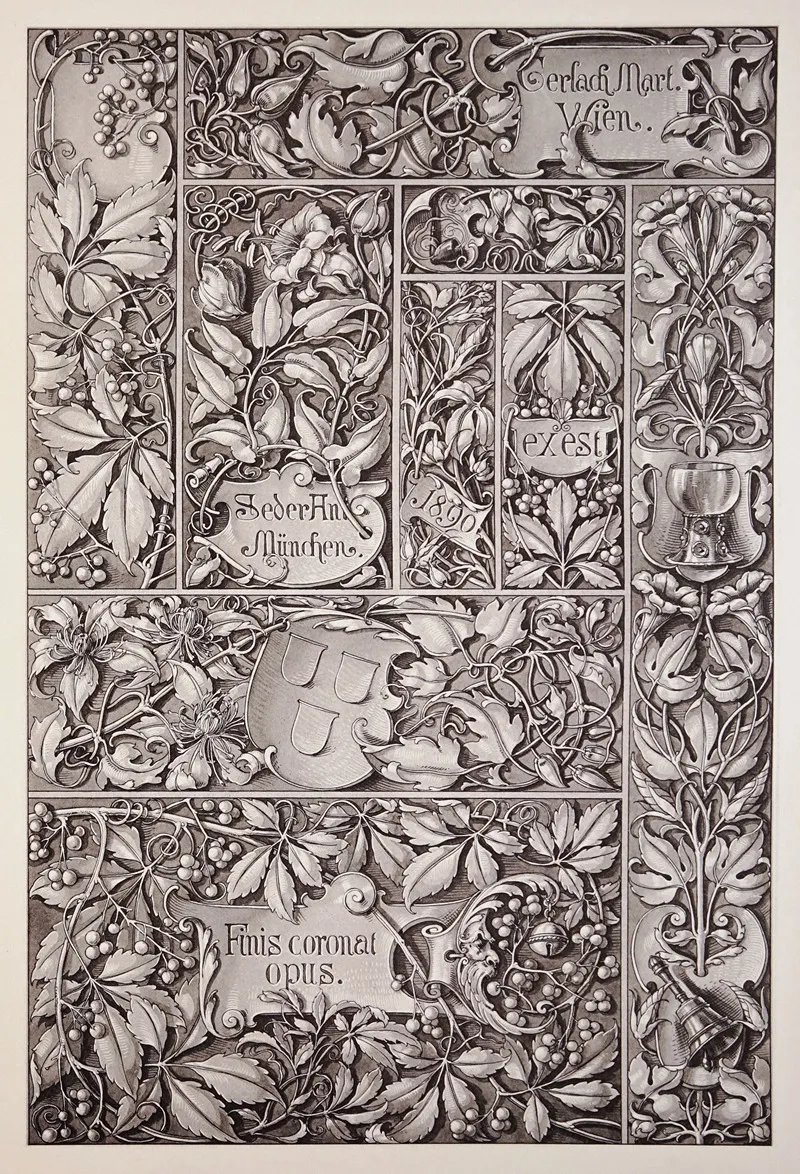 Gerlach Mart.
Wien.
Seder Ant
München.
1890
ex est
Finis coronat
opus.